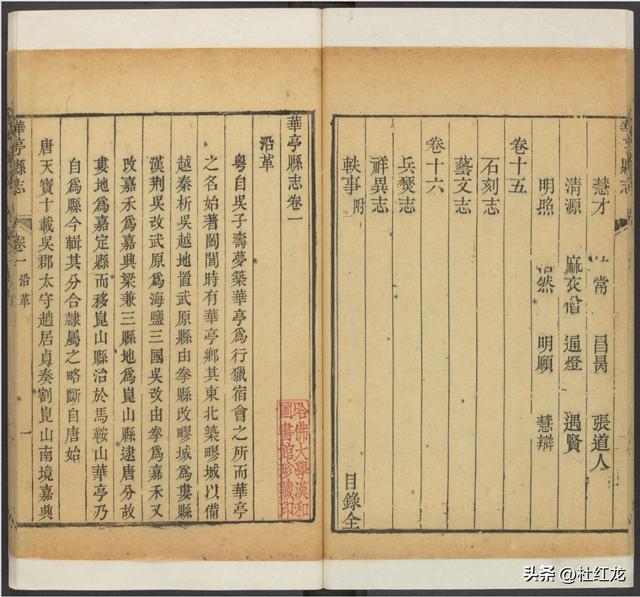 華亭縣志
慧才 常 張道人
清源 麻衣 遇賢
明照 然 明願 慧辯
卷十五
石刻志
藝文志
卷十六
兵燹志
祥異志
軼事附
目錄全
華亭縣志卷一
沿革
粤自吳子壽夢築華亭爲行獵宿會之所而華亭
之名始著闔閭時有華亭鄉其東北築疁城以備
越秦析吳越地置武原縣由拳縣改疁城爲婁縣
漢荆吳改武原爲海鹽三國吳改由拳爲嘉禾又
改嘉禾爲嘉興梁兼三縣地爲崑山縣逮唐分故
婁地爲嘉定縣而移崑山縣治於馬鞍山華亭乃
自爲縣今輯其分合隸屬之略斷自唐始
唐天寶十載吳郡太守趙居貞奏割崑山南境嘉興
哈佛大學漢和
圖書館珍藏印
華亭縣志
卷一 沿革
一
头条 @杜红龙